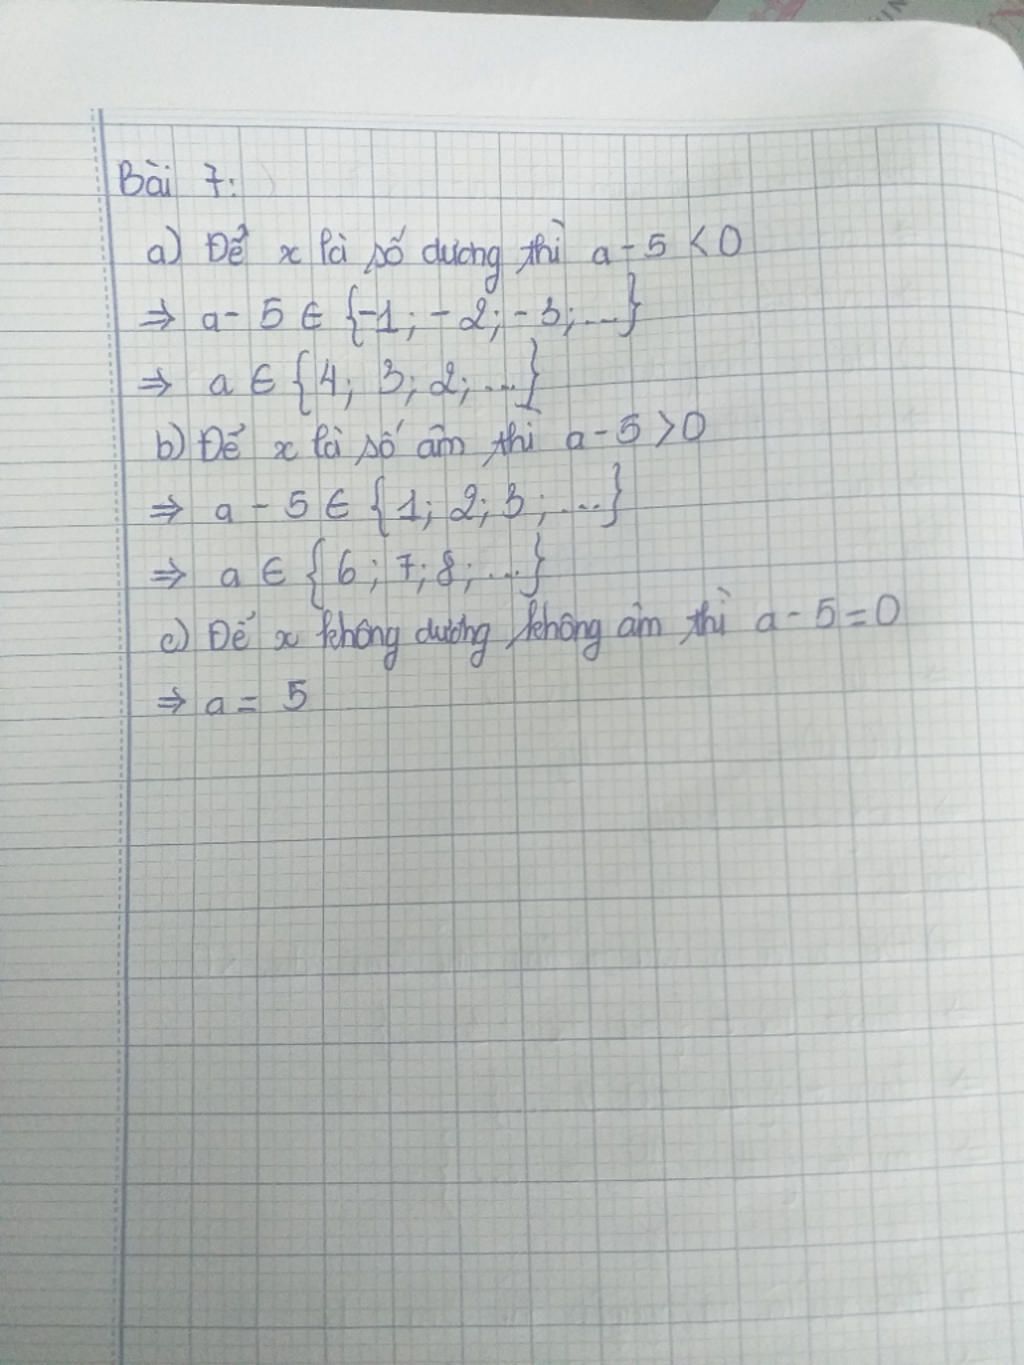 Bài 7:
a) Để x là số dương thì a - 5 < 0
⇒ a - 5 ∈ {-1; -2; -3; ...}
⇒ a ∈ {4; 3; 2; ...}
b) Để x là số âm thì a - 5 > 0
⇒ a - 5 ∈ {1; 2; 3; ...}
⇒ a ∈ {6; 7; 8; ...}
c) Để x không dương không âm thì a - 5 = 0
⇒ a = 5